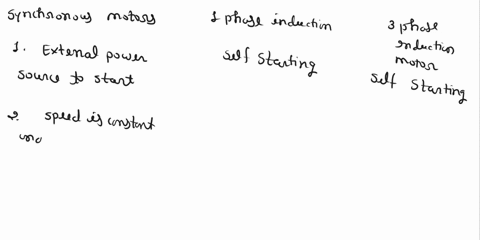 synchronous motors
1. External power
source to start
2. speed is constant
1 phase induction
Self Starting
3 phase
induction
motor
Self Starting